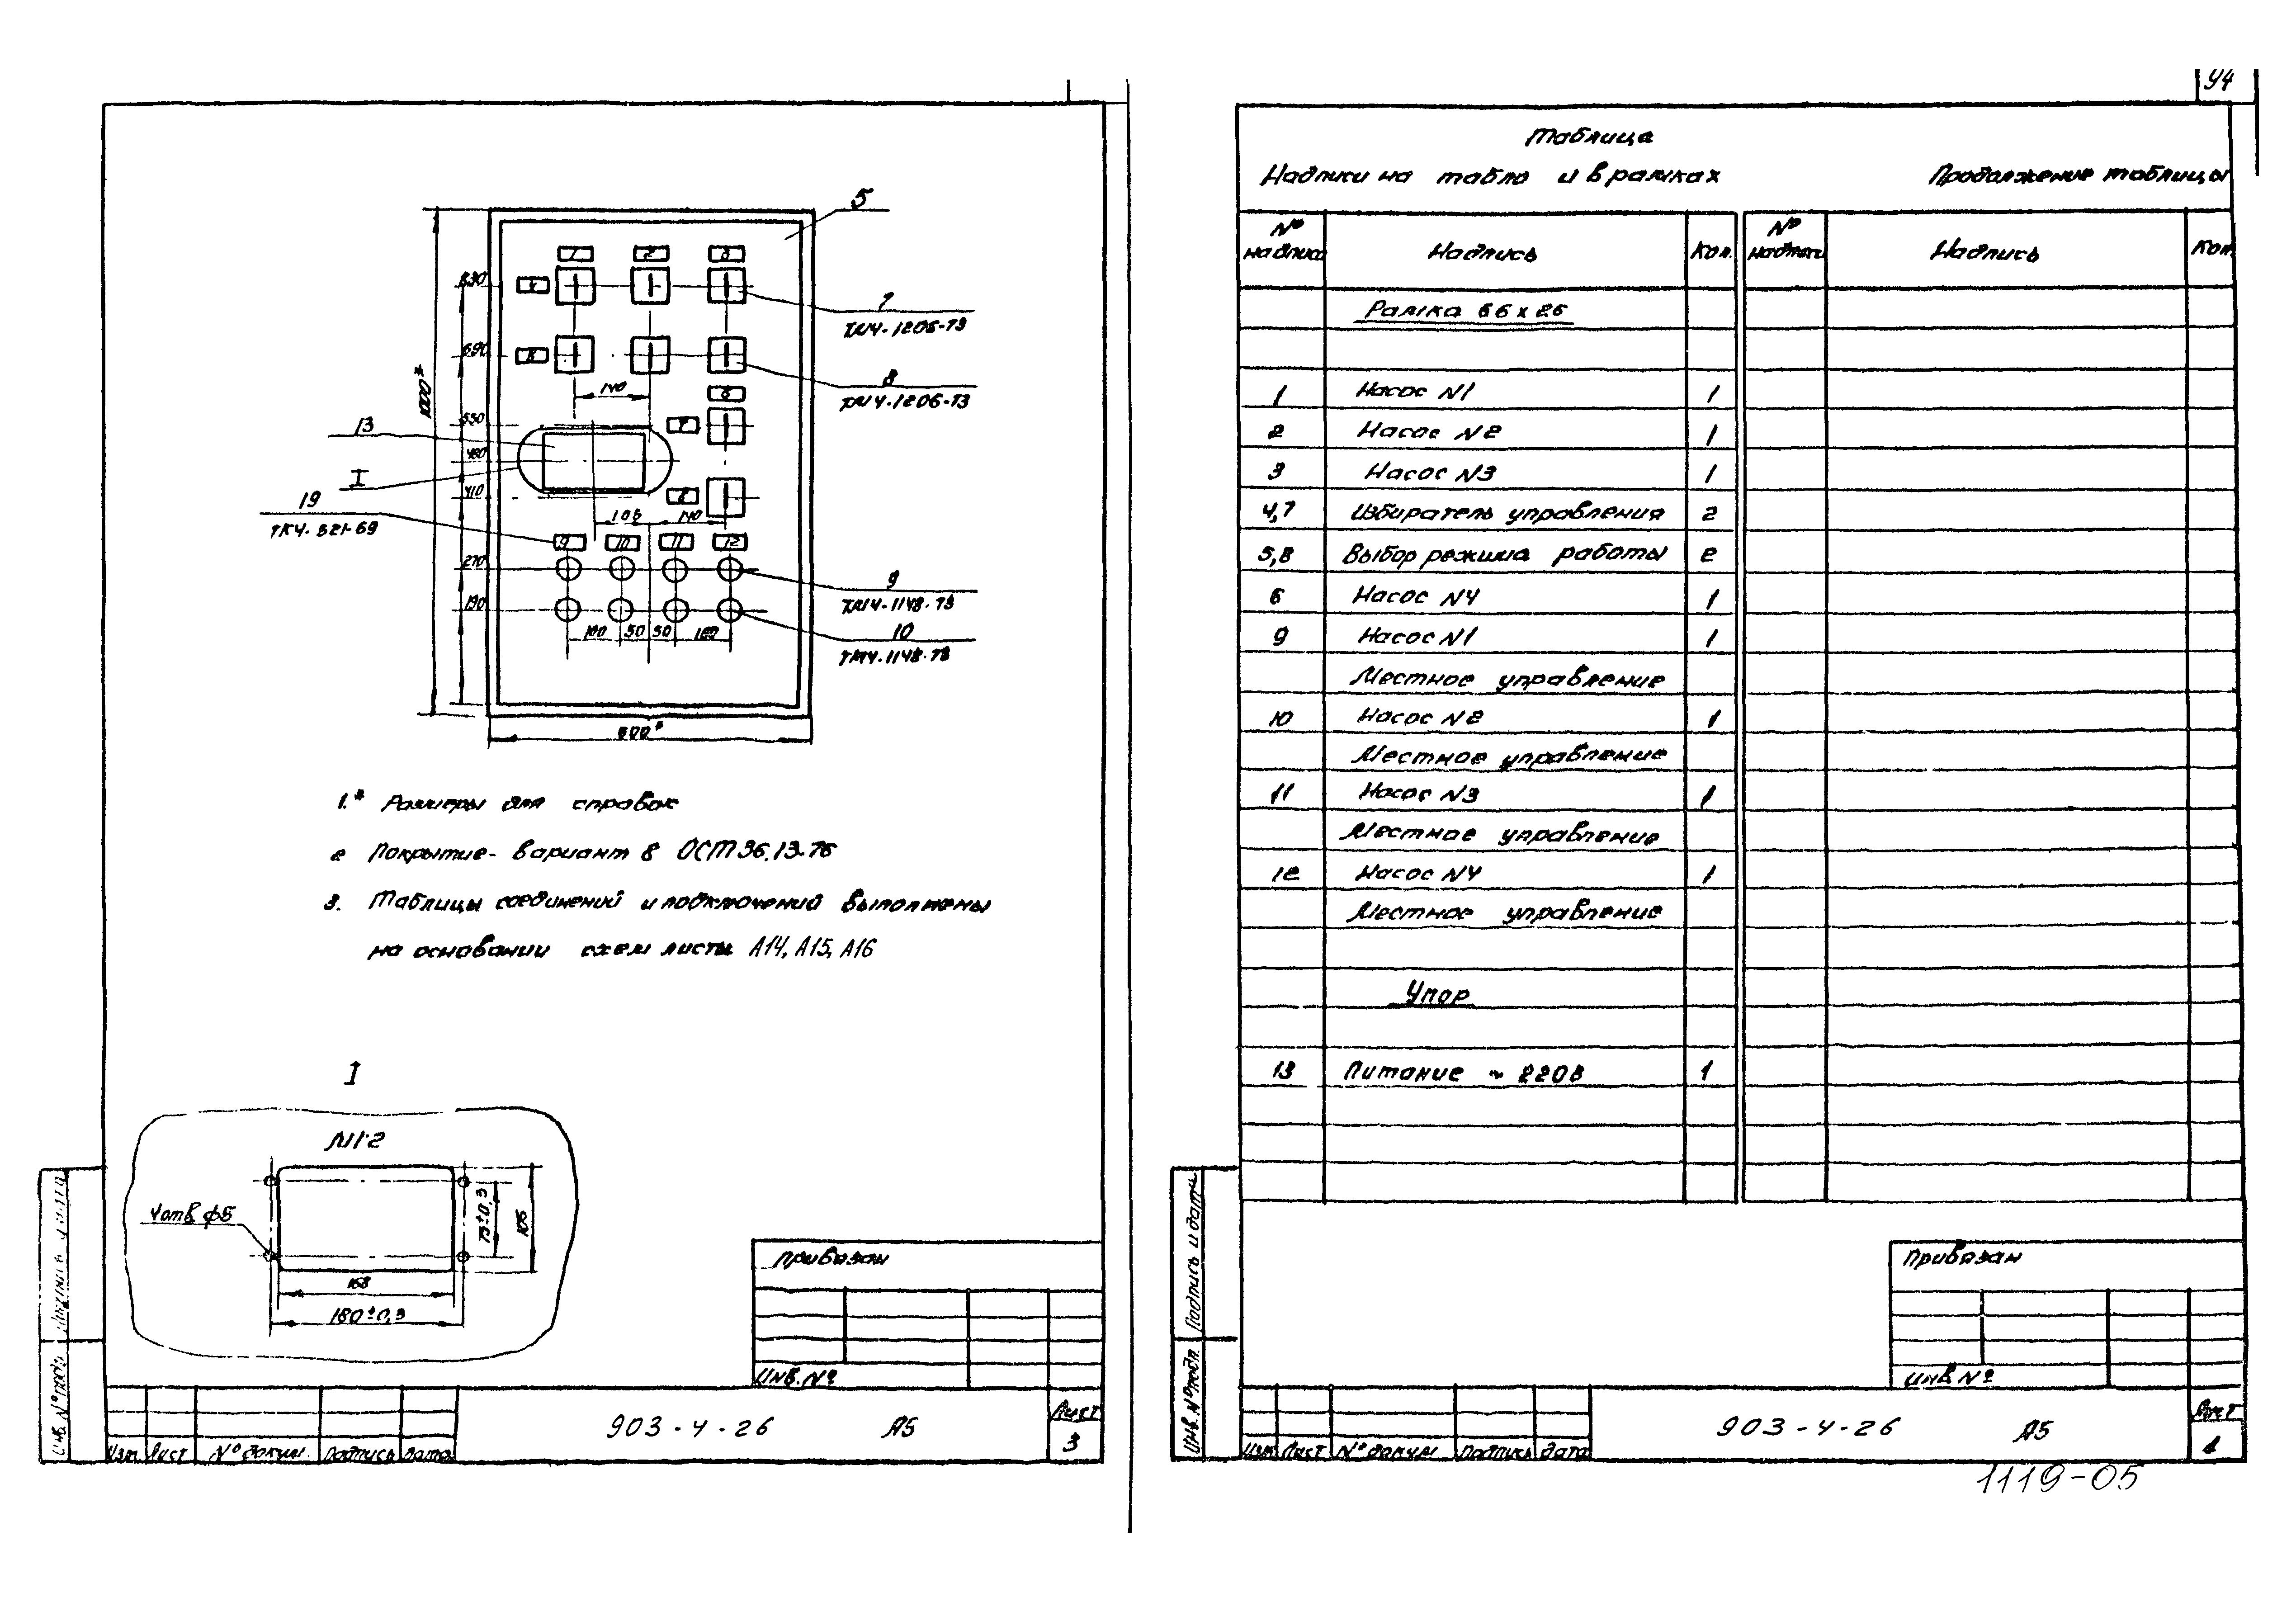 5
1
2
3
830
4
7
ТК4-1206-73
690
5
8
ТК4-1206-73
1000*
140
6
550
7
13
480
I
410
8
19
ТК4-321-69
105
140
9
10
11
12
270
9
ТК4-1148-73
190
10
ТК4-1148-73
100
50
50
100
600*
1.* Размеры для справок
2 Покрытие - вариант 8 ОСТ36.13-76
3. Таблицы соединений и подключений выполнены
на основании схем листы А14, А15, А16
I
М1:2
4 отв. ф5
75±0,3
105
168
180±0,3
Привязан
Инв. №
Изм Лист № докум. Подпись Дата
903-4-26 А5
Лист
3
Инв. № подл.
44
Таблица
Надписи на табло и в рамках
Продолжение таблицы
№ надписи Надпись Кол. № надписи Надпись Кол.
Рамка 66 х 26
1 Насос N1 1
2 Насос N2 1
3 Насос N3 1
4,7 Избиратель управления 2
5,8 Выбор режима работы 2
6 Насос N4 1
9 Насос N1 1
Местное управление
10 Насос N2 1
Местное управление
11 Насос N3 1
Местное управление
12 Насос N4 1
Местное управление
Упор
13 Питание ~ 220В 1
Привязан
Инв №
Инв. № подл. Подпись и дата
Изм Лист № докум Подпись Дата
903-4-26 А5
Лист
1119-05